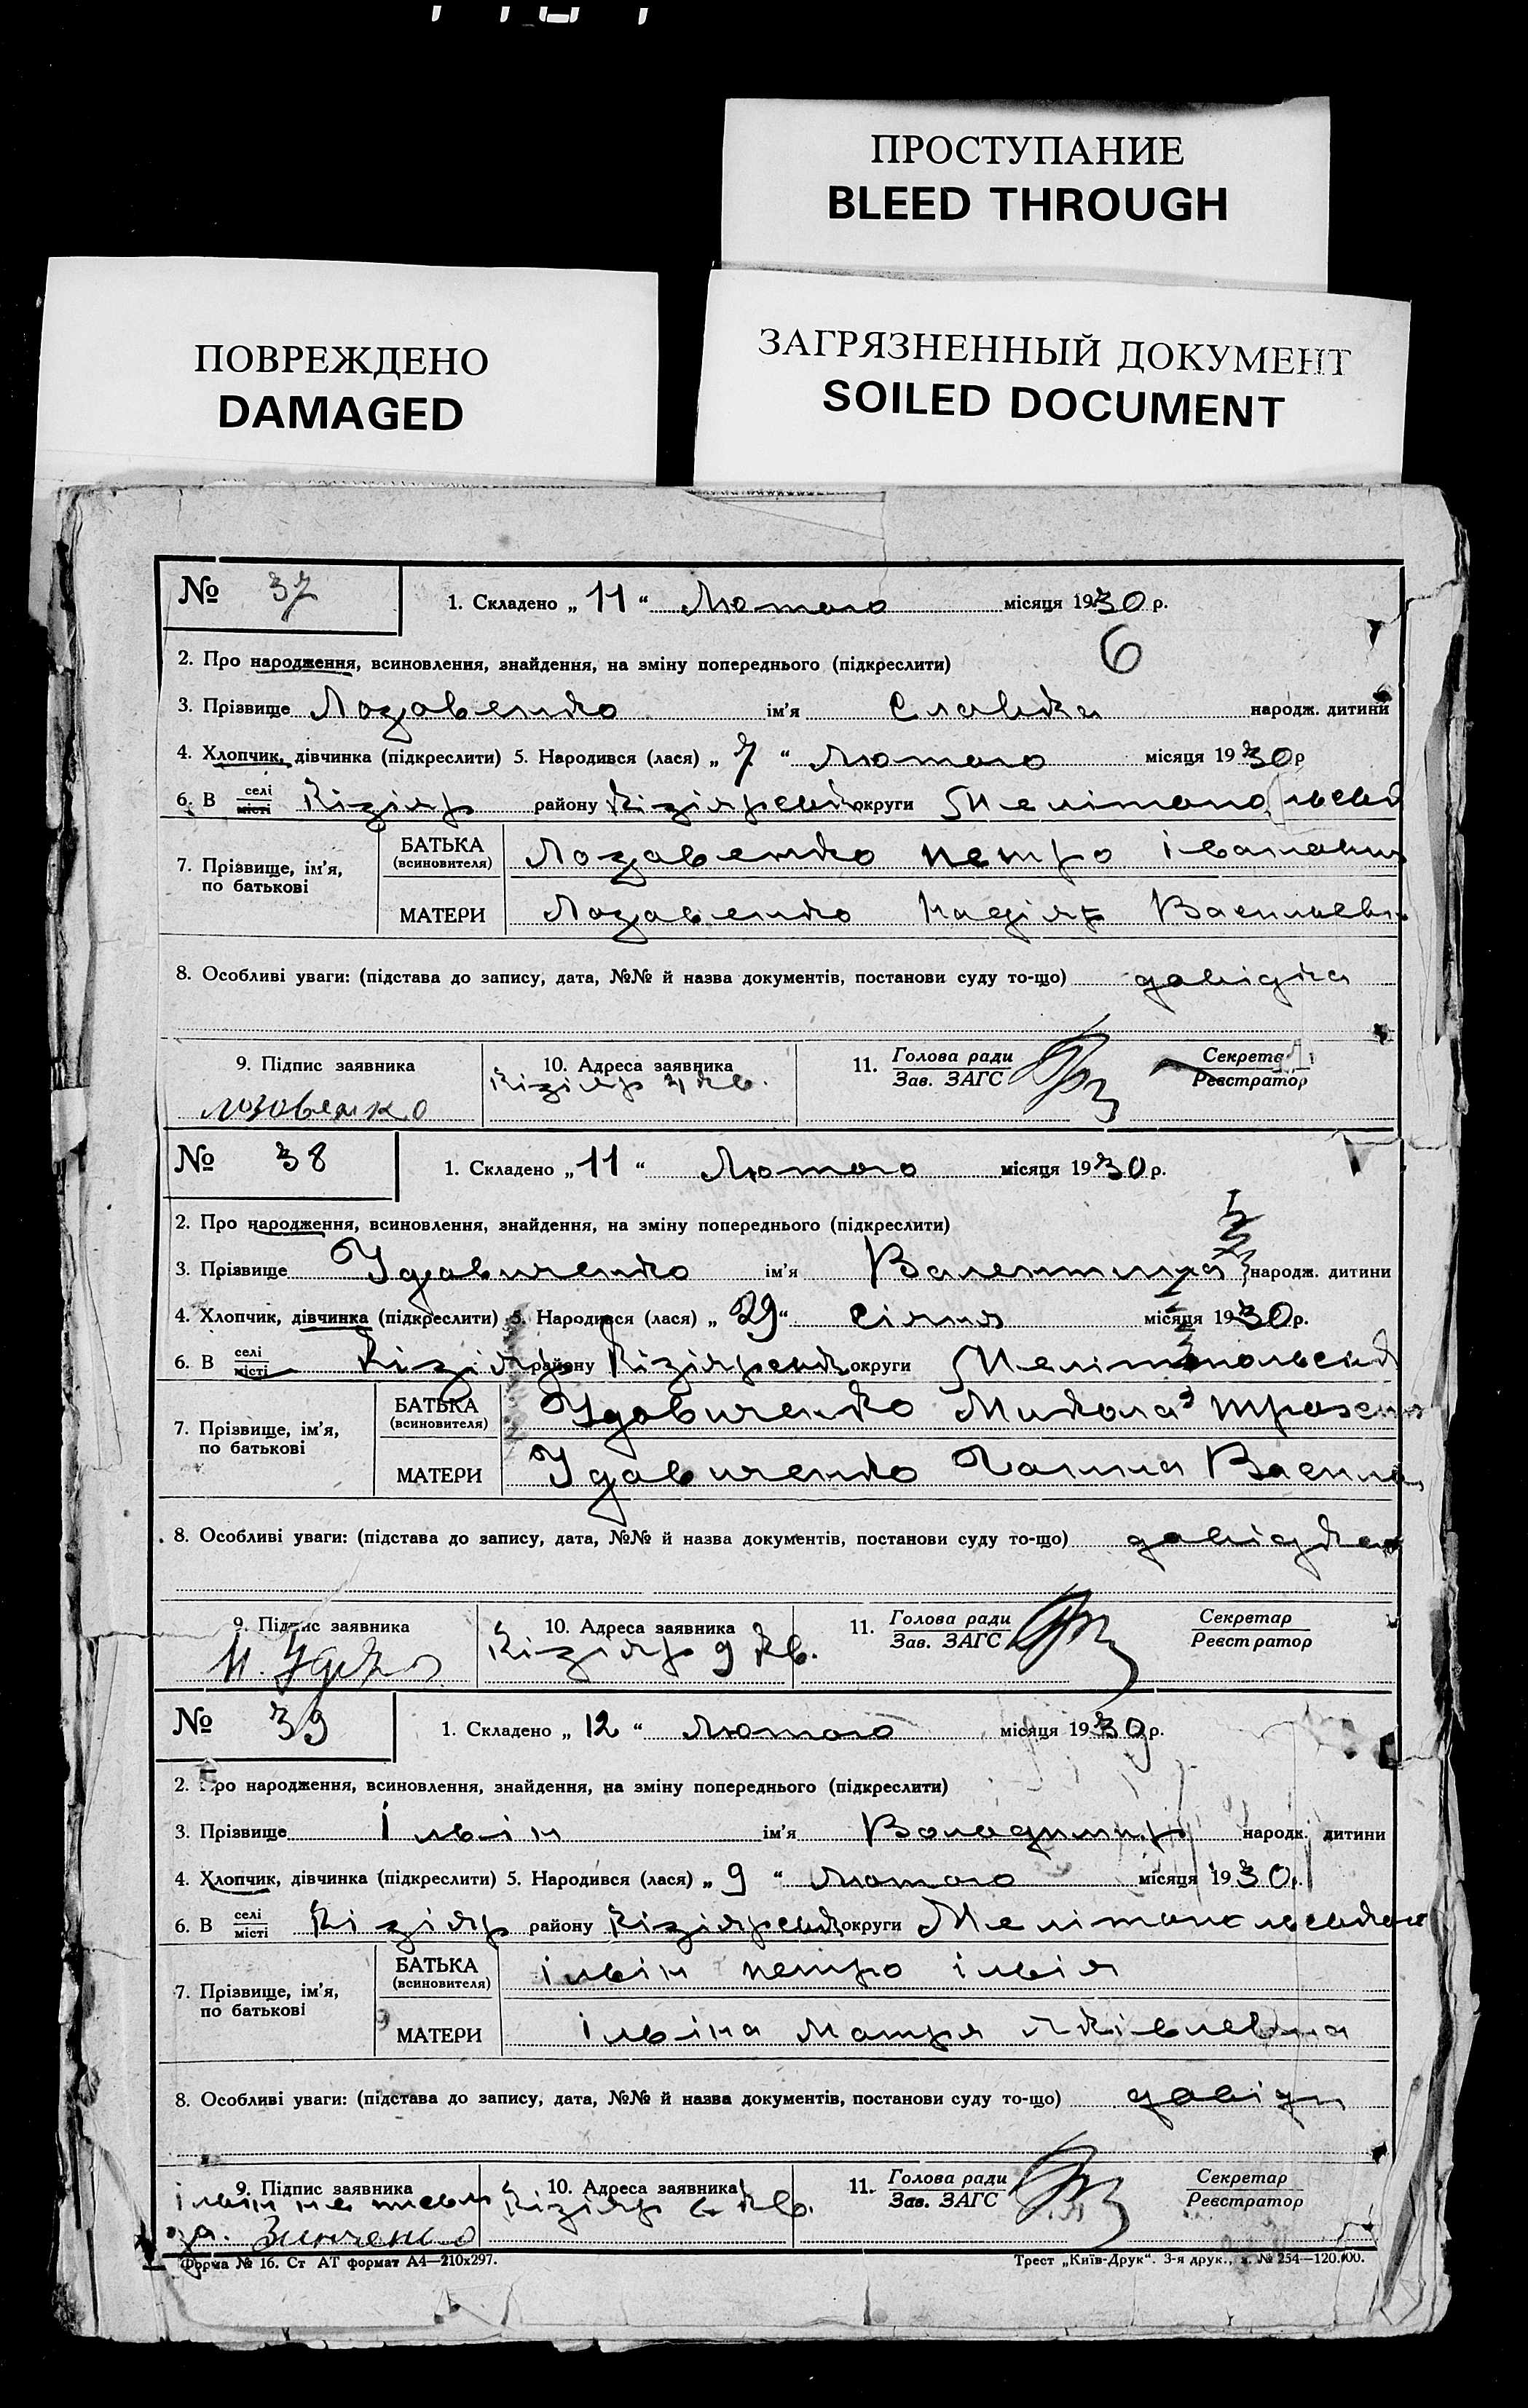 ПРОСТУПАНИЕ
BLEED THROUGH
ПОВРЕЖДЕНО
DAMAGED
ЗАГРЯЗНЕННЫЙ ДОКУМЕНТ
SOILED DOCUMENT
№ 37
1. Складено „ 11 “ Лютого місяця 1930 р.
6
2. Про народження, всиновлення, знайдення, на зміну попереднього (підкреслити)
3. Прізвище Лозавенко ім'я Славка народж. дитини
4. Хлопчик, дівчинка (підкреслити) 5. Народився (лася) „ 7 “ Лютого місяця 1930 р
6. В селі місті Кізіяр району Кізіярський округи Мелітопольській
7. Прізвище, ім'я, по батькові
БАТЬКА (всиновителя) Лозавенко петро
МАТЕРИ Лозавенко Надія
8. Особливі уваги: (підстава до запису, дата, №№ й назва документів, постанови суду то-що) довідка
9. Підпис заявника
10. Адреса заявника
11. Голова ради Зав. ЗАГС
Секретар Реєстратор
лозовенко
Кізіяр 4 кв.
№ 38
1. Складено „ 11 “ Лютого місяця 1930 р.
2. Про народження, всиновлення, знайдення, на зміну попереднього (підкреслити)
3. Прізвище Удавиченко ім'я Валентина народж. дитини
4. Хлопчик, дівчинка (підкреслити) 5. Народився (лася) „ 29 “ Січня місяця 1930 р.
6. В селі місті Кізіяр району округи
7. Прізвище, ім'я, по батькові
БАТЬКА (всиновителя) Удавиченко Микола
МАТЕРИ Удавиченко Ганна
8. Особливі уваги: (підстава до запису, дата, №№ й назва документів, постанови суду то-що) довідка
9. Підпис заявника
10. Адреса заявника
11. Голова ради Зав. ЗАГС
Секретар Реєстратор
Кізіяр 9 кв.
№ 39
1. Складено „ 12 “ Лютого місяця 1930 р.
2. Про народження, всиновлення, знайдення, на зміну попереднього (підкреслити)
3. Прізвище Ільін ім'я Володимир народж. дитини
4. Хлопчик, дівчинка (підкреслити) 5. Народився (лася) „ 9 “ Лютого місяця 1930 р.
6. В селі місті Кізіяр району округи
7. Прізвище, ім'я, по батькові
БАТЬКА (всиновителя) ільін петро ілья
МАТЕРИ ільіна Мотря Яківлевна
8. Особливі уваги: (підстава до запису, дата, №№ й назва документів, постанови суду то-що)
9. Підпис заявника
10. Адреса заявника
11. Голова ради Зав. ЗАГС
Секретар Реєстратор
Кізіяр 6 кв.
Форма № 16. Ст АТ формат А4—210x297.
Трест „Київ-Друк“. 3-я друк., з. № 254—120.000.